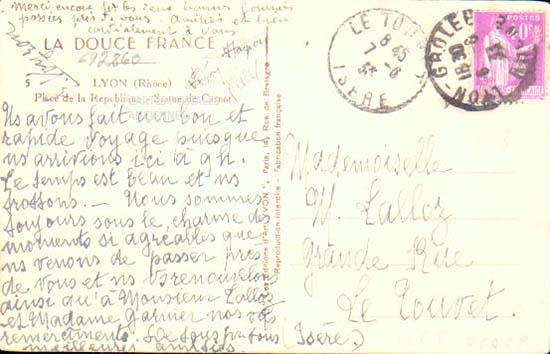 Merci encore pr les deux bonnes journées
passées près d vous. Amitiés et bien
cordialement à vous
LA DOUCE FRANCE
692860
5 LYON (Rhône)
Place de la République - Statue de Carnot
Ns avons fait un bon et
rapide voyage puisque
ns arrivions ici à 9h.
Le temps est beau et ns
trottons. — Nous sommes
toujours sous le charme des
moments si agréables que
ns venons de passer près
de vous et ns renouvelons
ainsi qu'à Monsieur Lalloz
et Madame Garnier nos
remerciments. De tous
meilleures amitiés.
Les Editions d'Art "YVON", Paris, 15, Rue de Bretagne
Reproduction interdite - Fabrication française
LE TOUVET
8 45
7 - 8
ISÈRE
GRENOBLE
18 30
POSTES
Mademoiselle
M. Lalloz
Grande Rue
Le Touvet
(Isère)